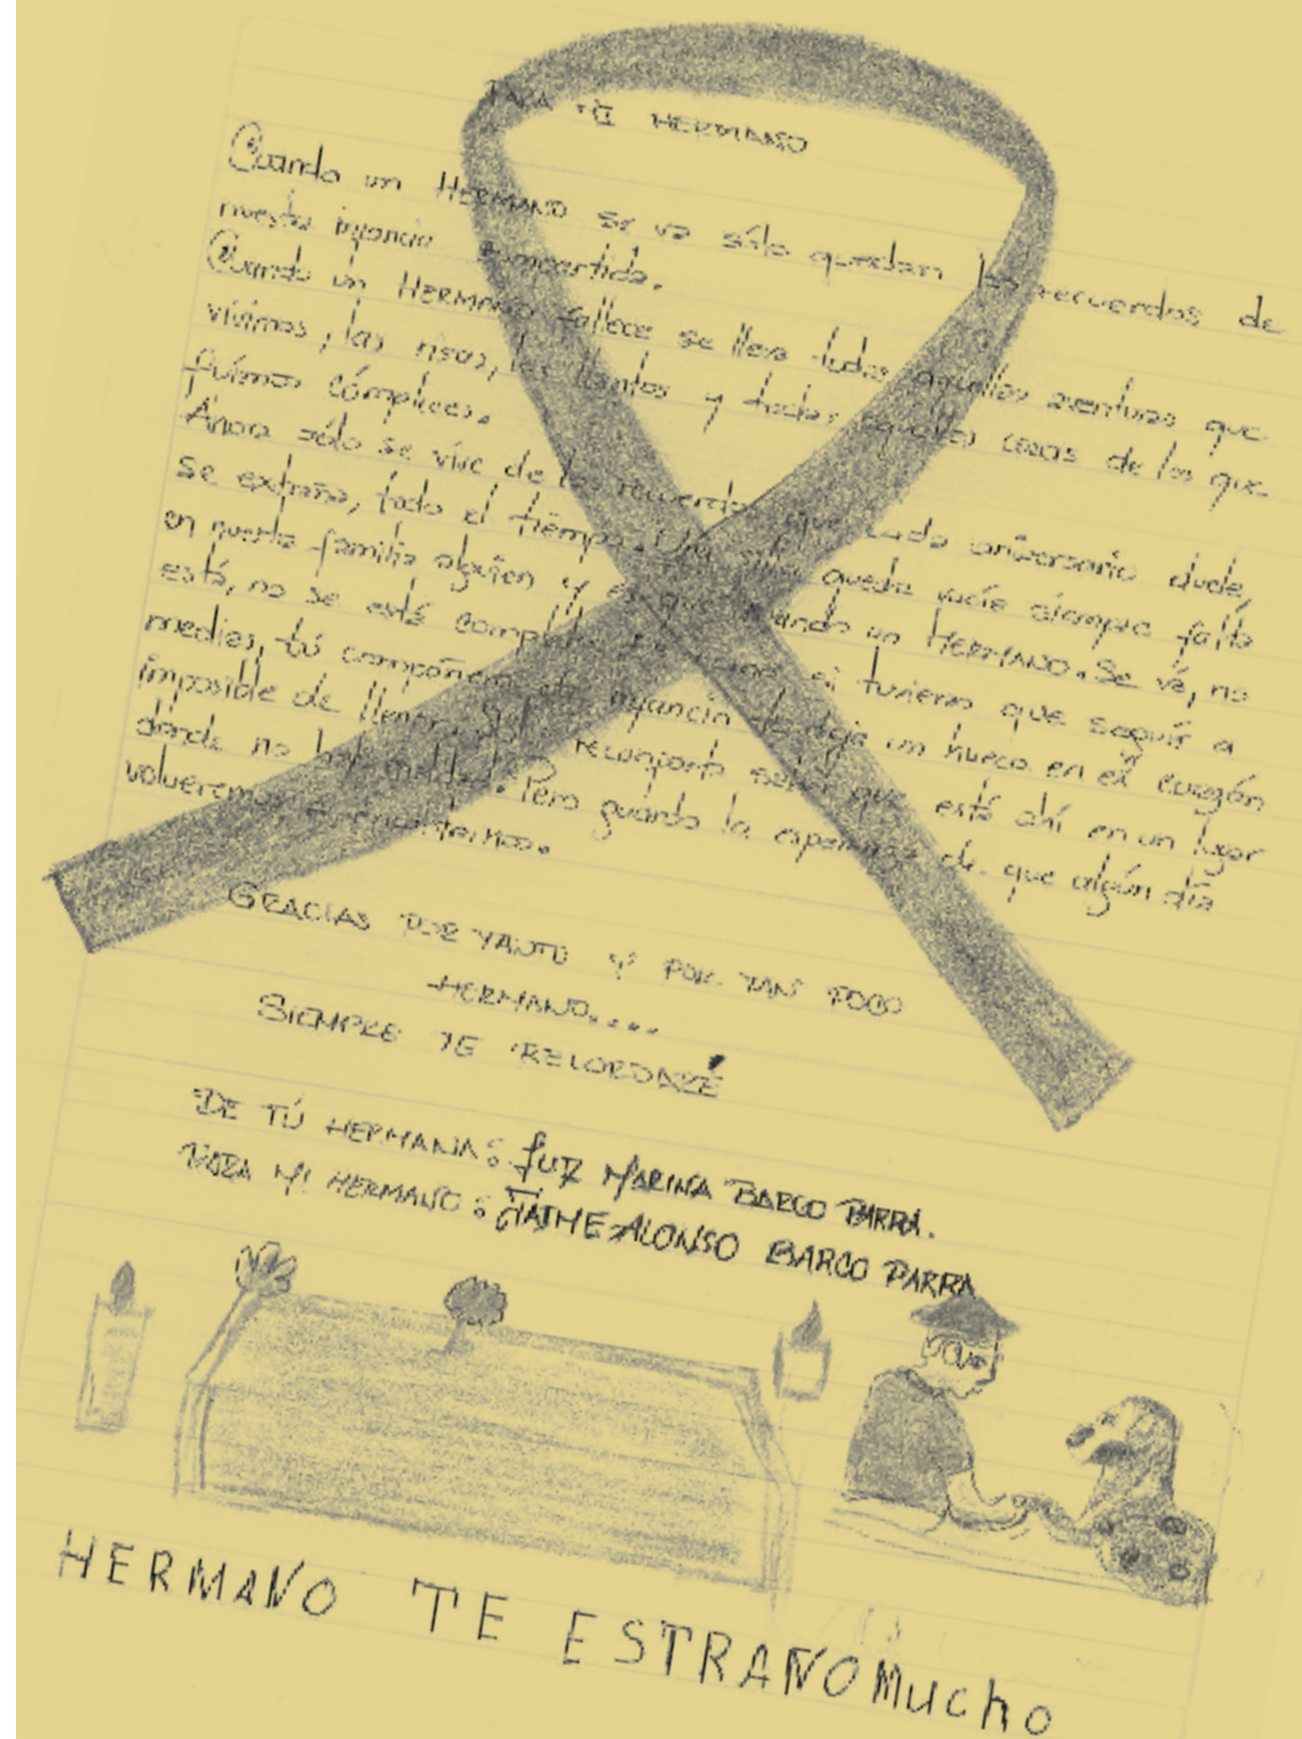 PARA TÚ HERMANO
Cuando un HERMANO se va sólo quedan los recuerdos de
nuestra infancia compartida.
Cuando un HERMANO fallece se lleva todas aquellas aventuras que
vivimos, las risas, los llantos y todas aquellas cosas de las que
fuímos cómplices.
Ahora sólo se vive de los recuerdos que cada aniversario duele,
se extraña, todo el tiempo. Una silla queda vacía siempre falta
en nuestra familia alguien y es que cuando un HERMANO. Se vá, no
está, no se está completo. Es como si tuvieras que seguir a
medias, tú compañero de infancia te deja un hueco en el corazón
imposible de llenar. Sólo reconforta saber que está ahí en un lugar
dónde no hay maldad. Pero guardo la esperanza de que algún día
volveremos a encontrarnos.
GRACIAS POR TANTO Y POR TAN POCO
HERMANO....
SIEMPRE TE RECORDARÉ
DE TÚ HERMANA: LUZ MARINA BARCO PARRA.
PARA MI HERMANO: JAIME ALONSO BARCO PARRA
HERMAÑO TE ESTRAÑO MUCHO